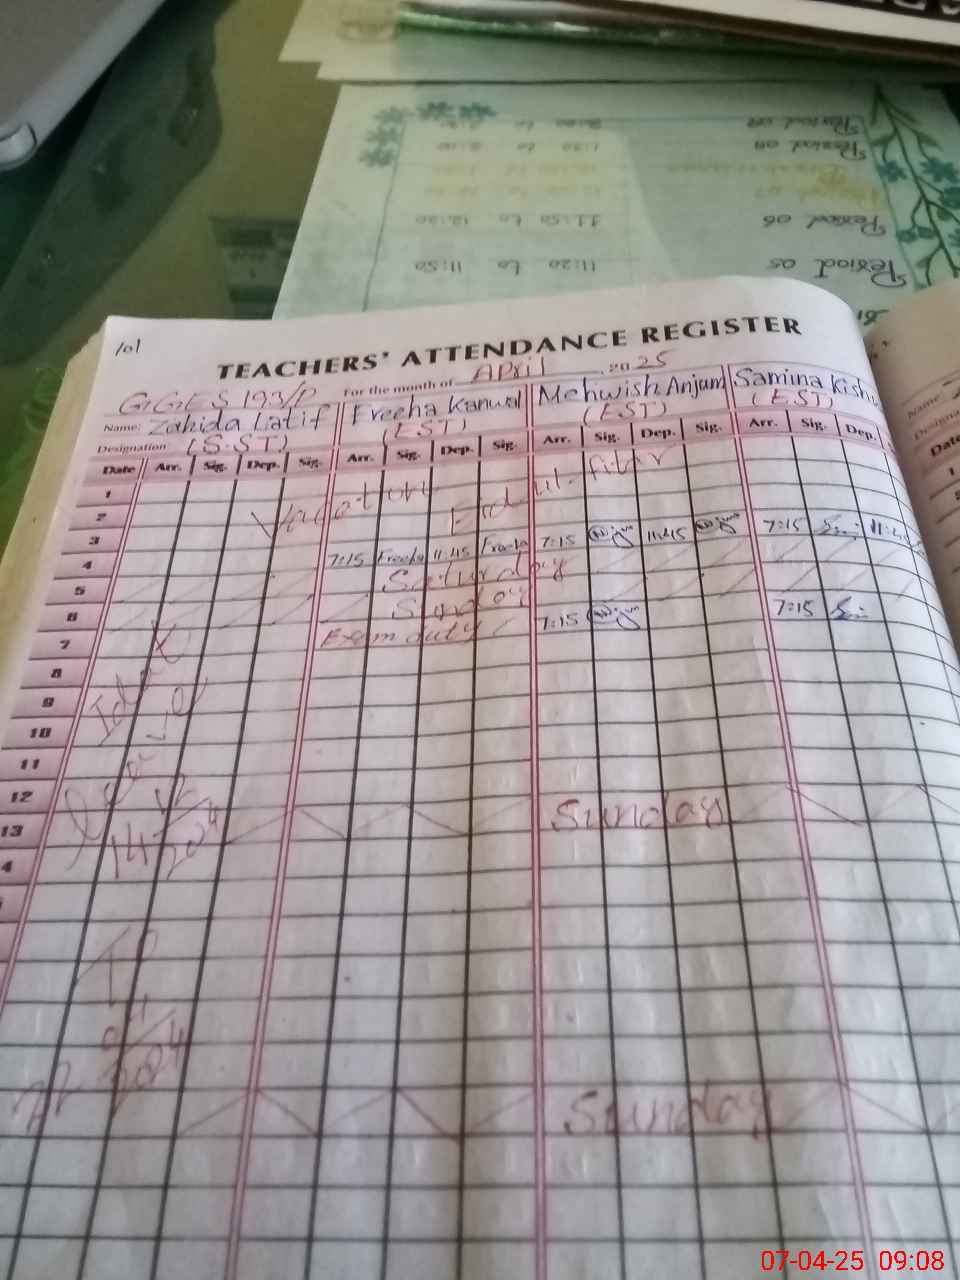 Period 08
Period 07
1:30 to 2:10
Period 06 11:50 to 12:30
Period 05 11:20 to 11:50
101
TEACHERS' ATTENDANCE REGISTER
For the month of April 2025
GGES 193/P
Name: Zahida Latif Freeha Kanwal Mehwish Anjum Samina Kishw
Designation: (S.ST) (EST) (EST) (EST)
Date Arr. Sig. Dep. Sig. Arr. Sig. Dep. Sig. Arr. Sig. Dep. Sig. Arr. Sig. Dep.
1
2 Vacation Eid ul fitar
3
4 7:15 Freeha 11:45 Freeha 7:15 11:45 7:15
5 Saturday
6 Sunday
7 Exam duty 7:15 7:15
8
9
10
11
12
13 Sunday
Iddat
leave
14 12/2024
To
22 4/2024
Sunday
07-04-25 09:08